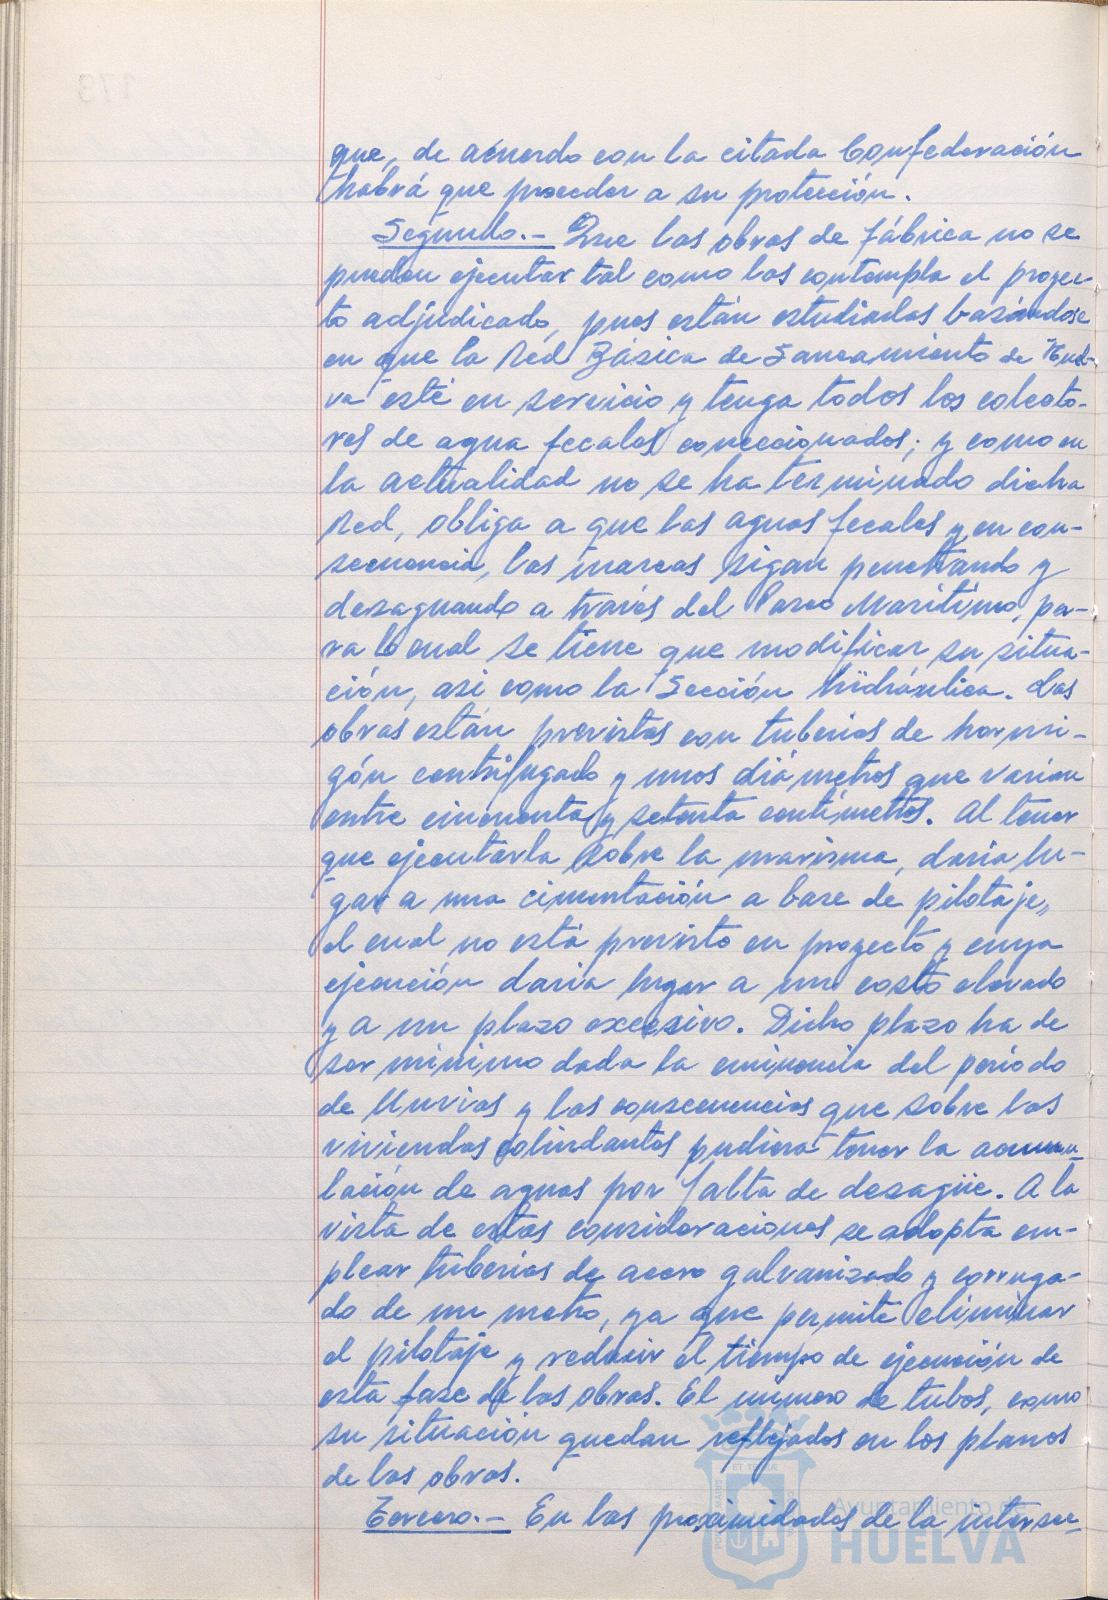 que, de acuerdo con la citada Confederación
habrá que proceder a su protección.
Segundo.- Que las obras de fábrica no se
puedan ejecutar tal como las contempla el proyec-
to adjudicado, pues están estudiadas basándose
en que la Red Básica de Saneamiento de Huel-
va esté en servicio y tenga todos los colecto-
res de agua fecales coneccionados; y como en
la actualidad no se ha terminado dicha
Red, obliga a que las aguas fecales y, en con-
secuencia, las mareas sigan penetrando y
desaguando a través del Paseo Marítimo, pa-
ra lo cual se tiene que modificar su situa-
ción, asi como la Sección hidráulica. Las
obras están previstas con tuberias de hormi-
gón centrifugado y unos diámetros que varian
entre cincuenta y setenta centímetros. Al tener
que ejecutarla sobre la marisma, daria lu-
gar a una cimentación a base de pilotaje,
el cual no está previsto en proyecto y cuya
ejecución daria lugar a un costo elevado
y a un plazo excesivo. Dicho plazo ha de
ser mínimo dada la eminencia del periodo
de lluvias y las consecuencias que sobre las
viviendas colindantes pudiera tener la acumu-
lación de aguas por falta de desagüe. A la
vista de estas consideraciones se adopta em-
plear tuberias de acero galvanizado y corruga-
do de un metro, ya que permite eliminar
el pilotaje y reducir el tiempo de ejecución de
esta fase de las obras. El número de tubos, como
su situación quedan reflejados en los planos
de las obras.
Tercero.- En las proximidades de la intersec-
Ayuntamiento de
HUELVA